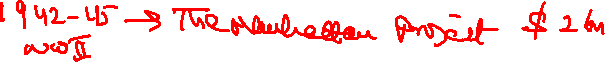 1942-45 → The Manhattan Project $ 2bn
WW II